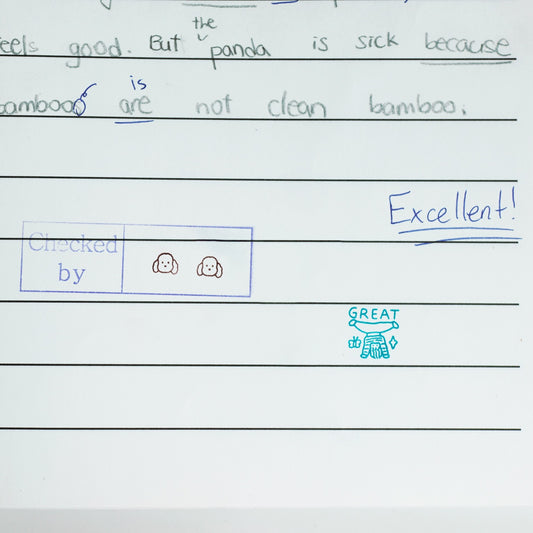 eels good. But the panda is sick because
bamboos is are not clean bamboo.
Excellent!
Checked
by
GREAT